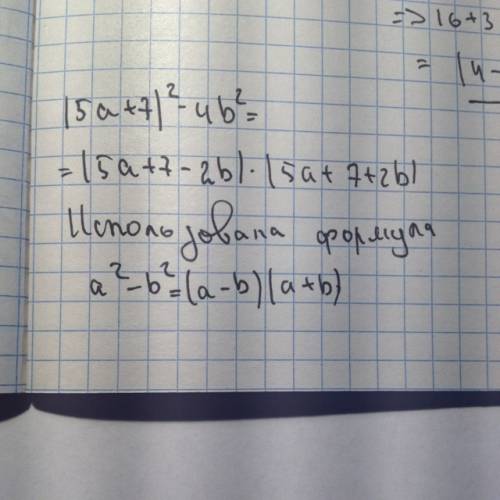 => 16+3
= (4-
(5a+7)²-4b²=
=(5a+7-2b)·(5a+7+2b)
Использована формула
a²-b²=(a-b)(a+b)